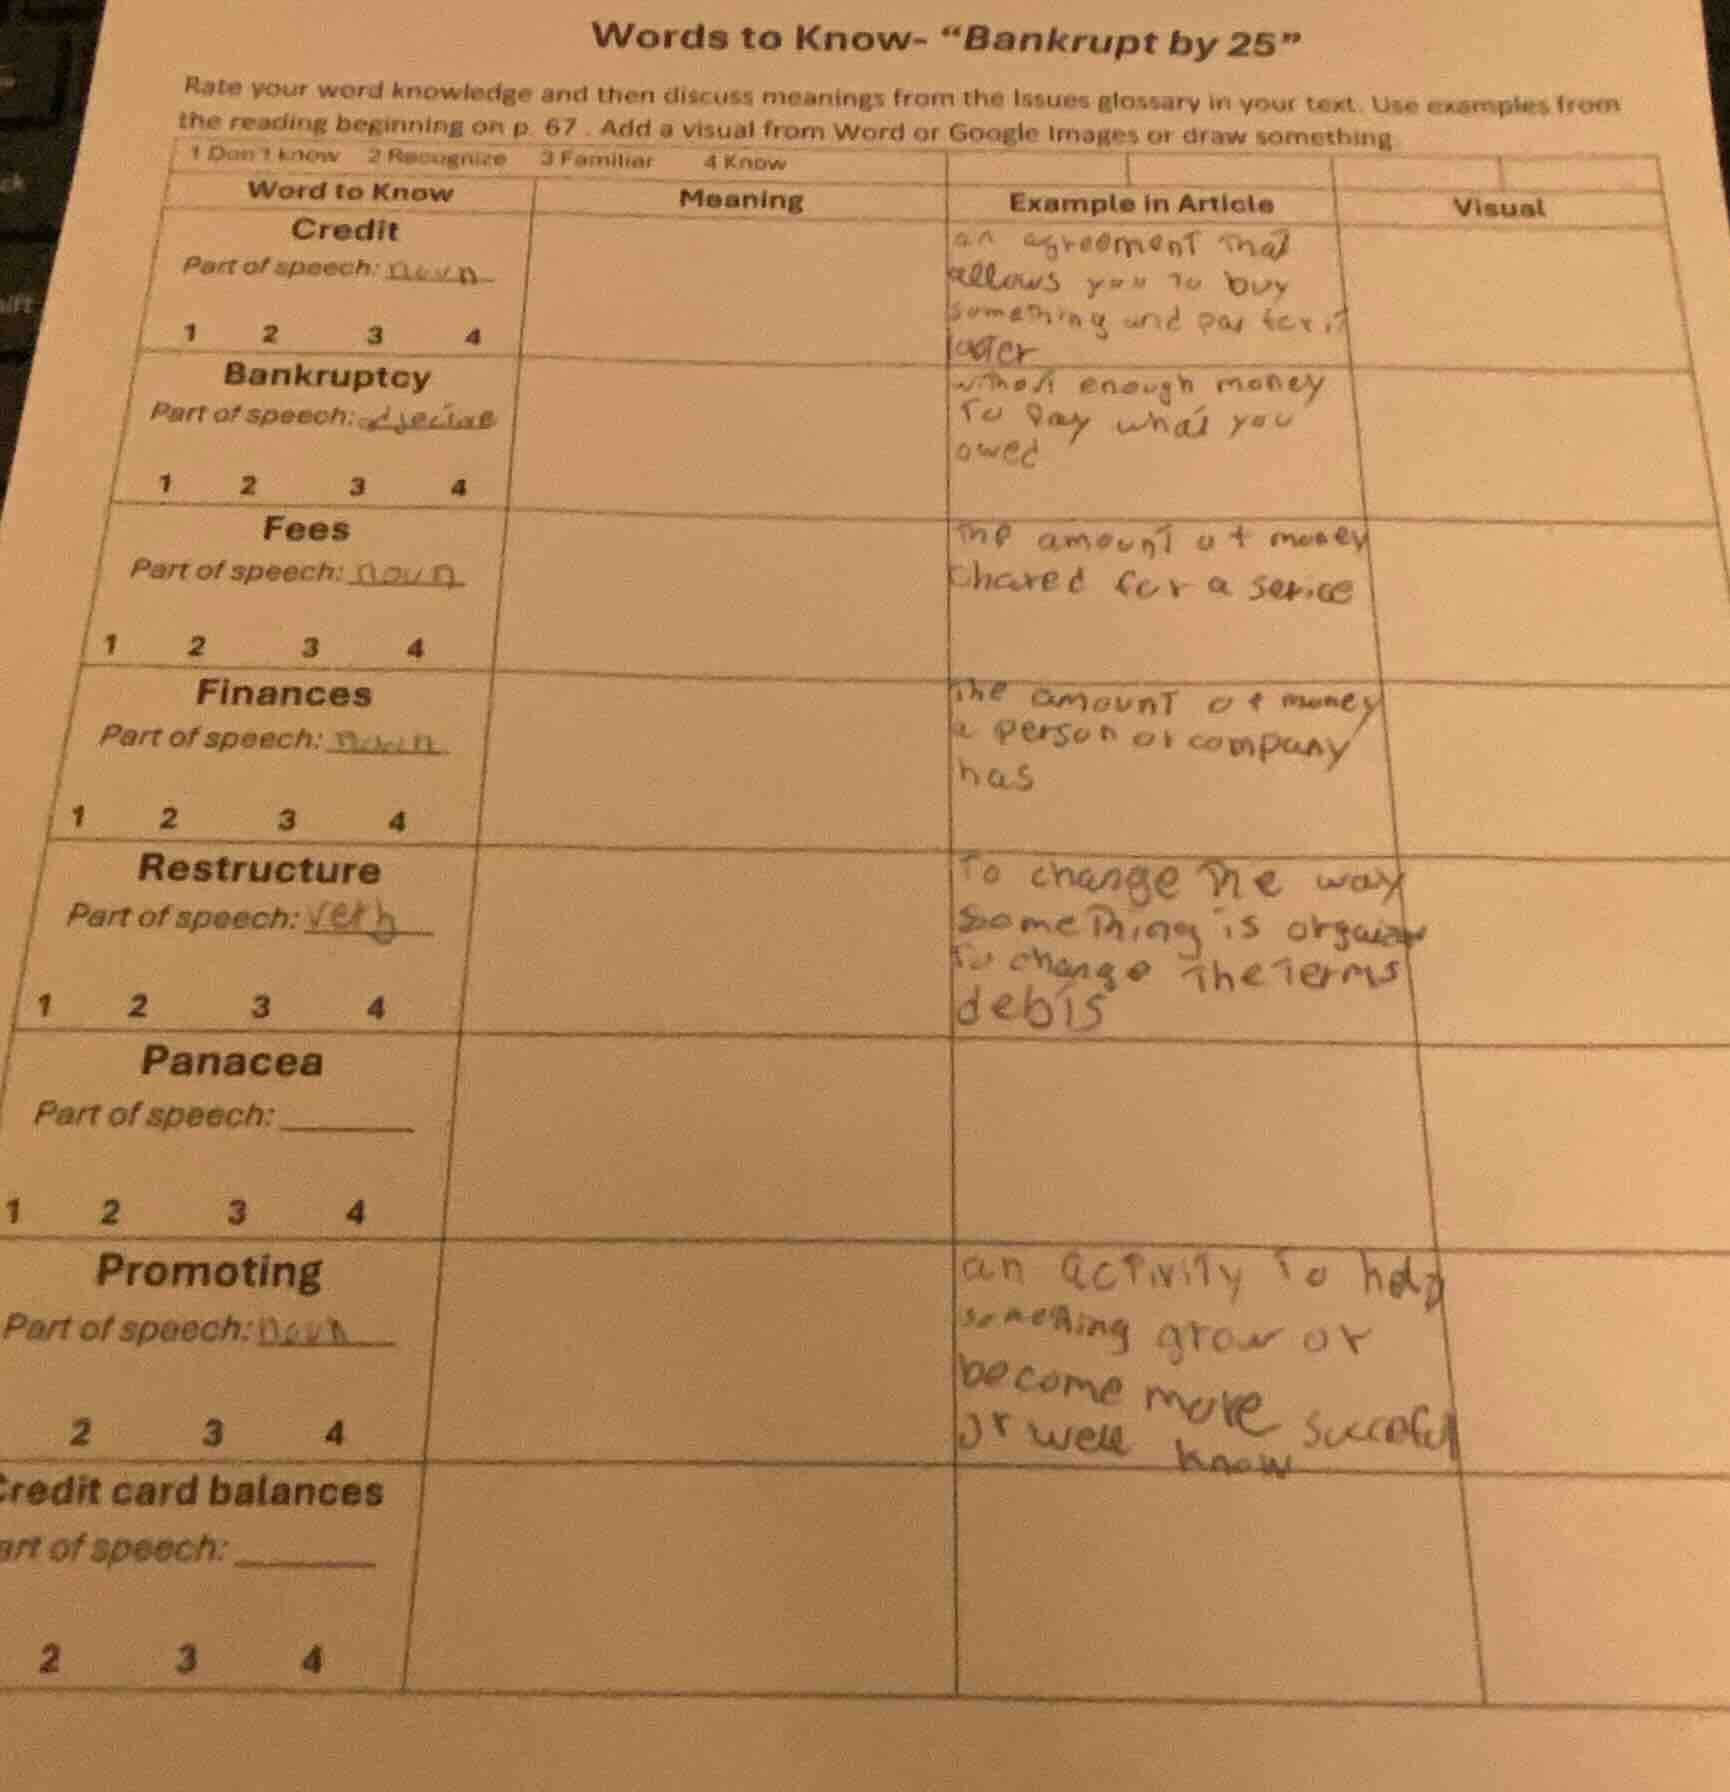 Words to Know- “Bankrupt by 25”
Rate your word knowledge and then discuss meanings from the Issues glossary in your text. Use examples from
the reading beginning on p. 67 . Add a visual from Word or Google Images or draw something
1 Don't know 2 Recognize 3 Familiar 4 Know
Word to Know Meaning Example in Article Visual
Credit
Part of speech: noun
1 2 3 4
an agreement that
allows you to buy
something and pay for it
later
Bankruptcy
Part of speech: adjective
1 2 3 4
without enough money
to pay what you
owed
Fees
Part of speech: noun
1 2 3 4
the amount of money
chared for a serice
Finances
Part of speech: noun
1 2 3 4
the amount of money
a person or company
has
Restructure
Part of speech: verb
1 2 3 4
to change the way
something is
to change the terms
debts
Panacea
Part of speech:
1 2 3 4
Promoting
Part of speech: noun
2 3 4
an activity to help
something grow or
become more
or well know
Credit card balances
art of speech:
2 3 4